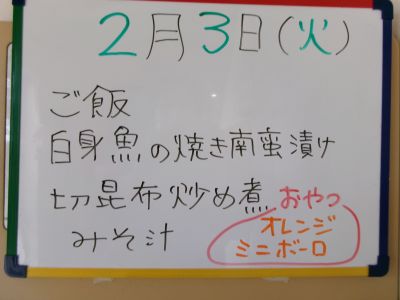 2月3日(火)
ご飯
白身魚の焼き南蛮漬け
切昆布炒め煮
みそ汁
おやつ
オレンジ
ミニボーロ